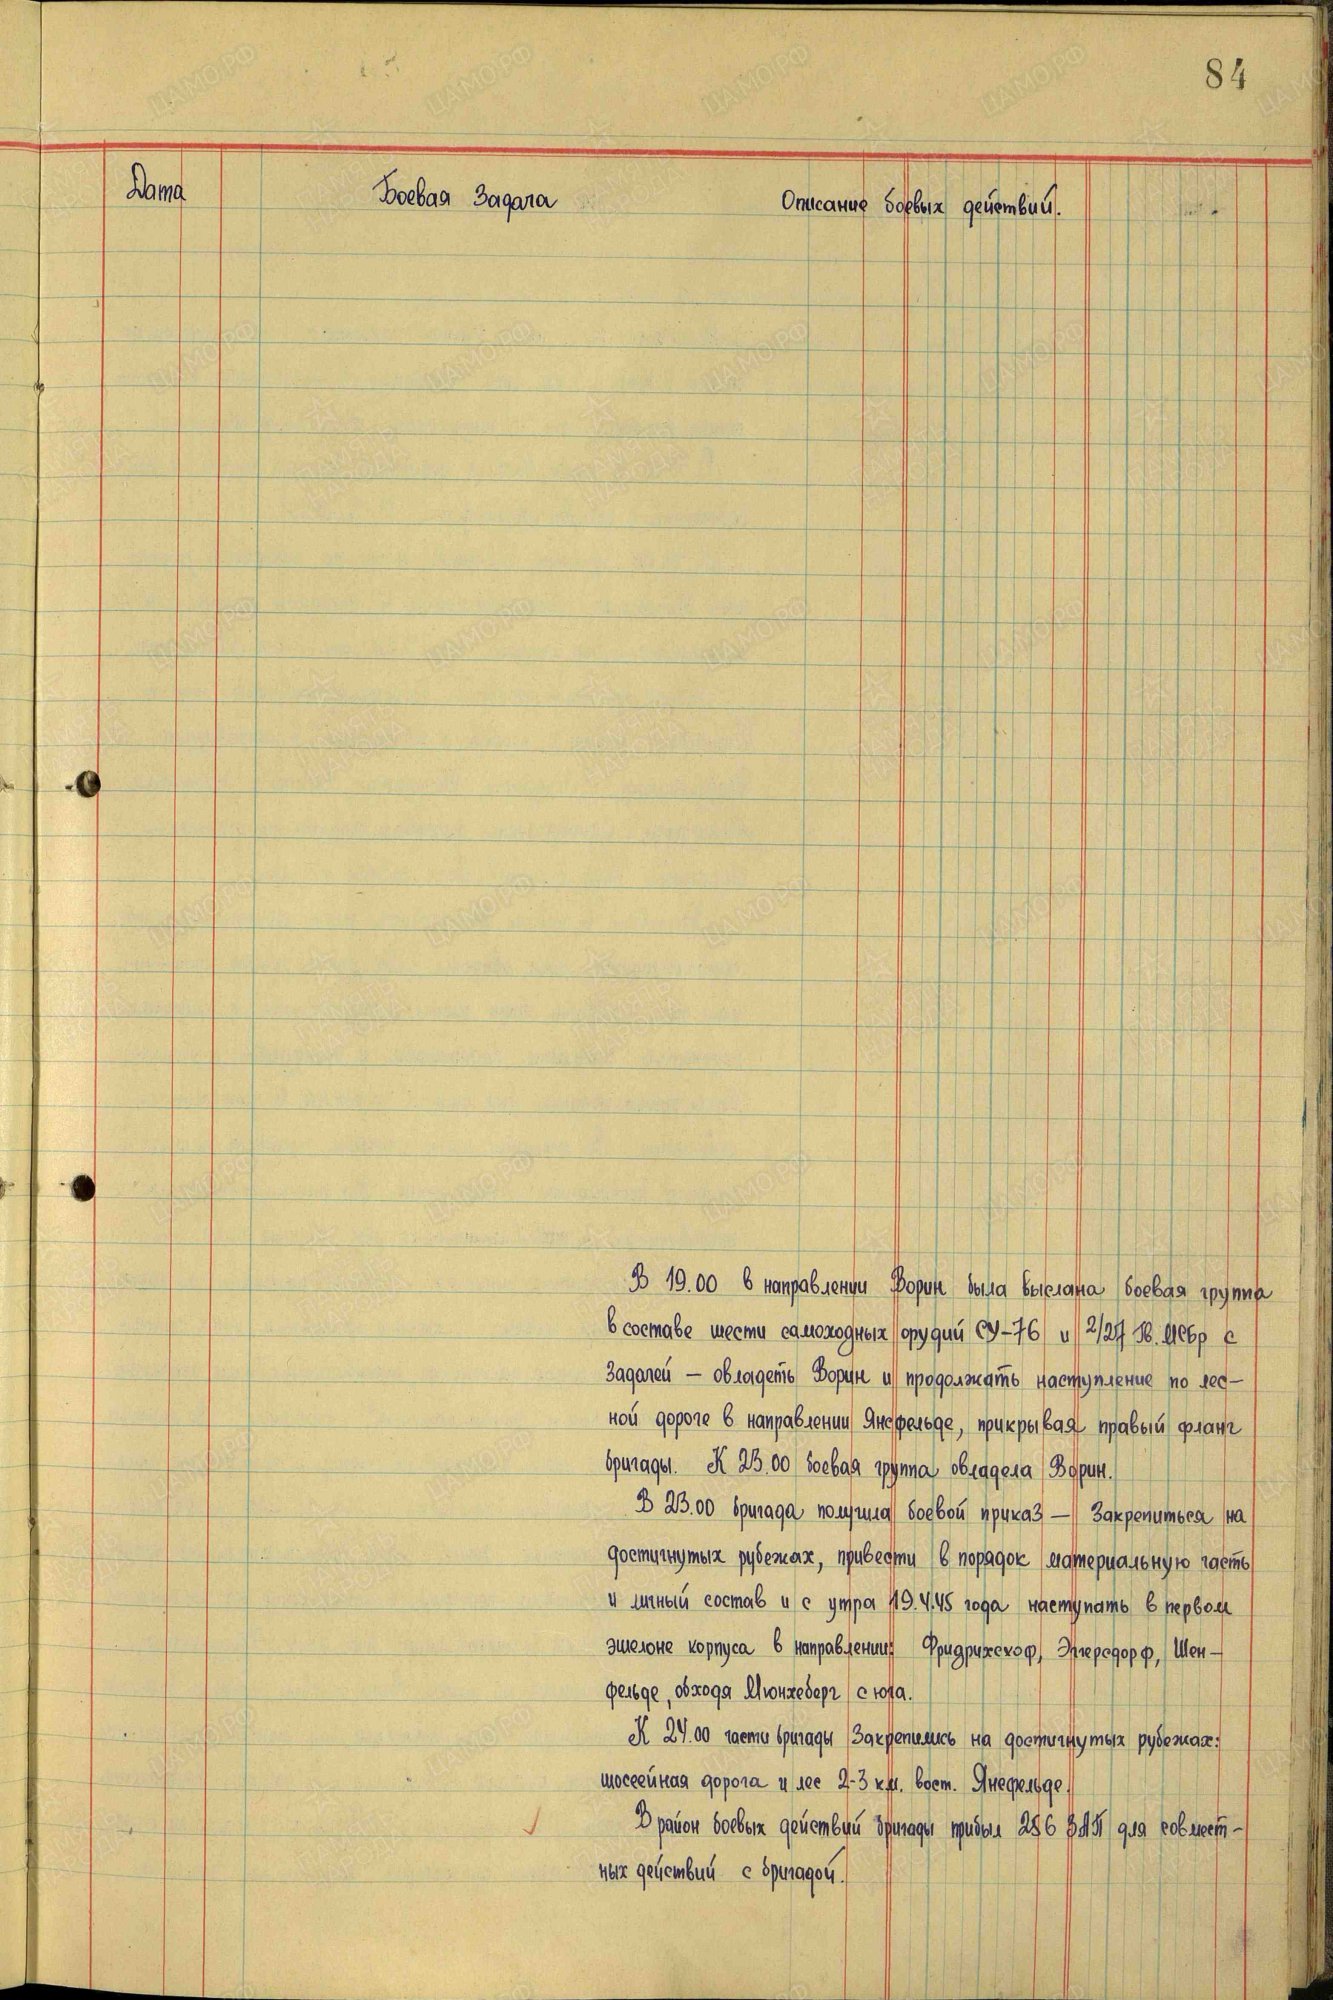 84
Дата Боевая Задача Описание боевых действий.
В 19.00 в направлении Ворин была выслана боевая группа
в составе шести самоходных орудий СУ-76 и 2/27 Гв. МСбр с
Задачей — овладеть Ворин и продолжать наступление по лес-
ной дороге в направлении Янсфельде, прикрывая правый фланг
бригады. К 23.00 боевая группа овладела Ворин.
В 23.00 бригада получила боевой приказ — Закрепиться на
достигнутых рубежах, привести в порядок материальную часть
и личный состав и с утра 19.4.45 года наступать в первом
эшелоне корпуса в направлении: Фридрихсхоф, Эггерсдорф, Шен-
фельде, обходя Мюнхеберг с юга.
К 24.00 части бригады Закрепились на достигнутых рубежах:
шоссейная дорога и лес 2-3 км. вост. Янсфельде.
В район боевых действий бригады прибыл 286 ЗАП для совмест-
ных действий с бригадой.
ЦАМО.РФ
ПАМЯТЬ
НАРОДА